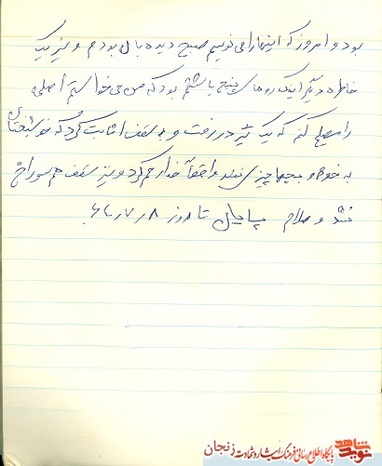 بود و امروز که اینها را می نویسم صبح دیده بان بودم و نیز یک
خاطره دیگر اینکه روزهای پنج یا ششم بود که من می خواستم اسلحه
را مسلح کنم که یک تیر در رفت و به سقف اصابت کرد که خوشبختانه
به خودم و بچه ها چیزی نشد واقعاً خدا رحم کرد و نیز سقف هم سوراخ
نشد والسلام پایان تا روز ۸ر۷ر
نوید شاهد
پایگاه اطلاع رسانی فرهنگ ایثار و شهادت زنجان